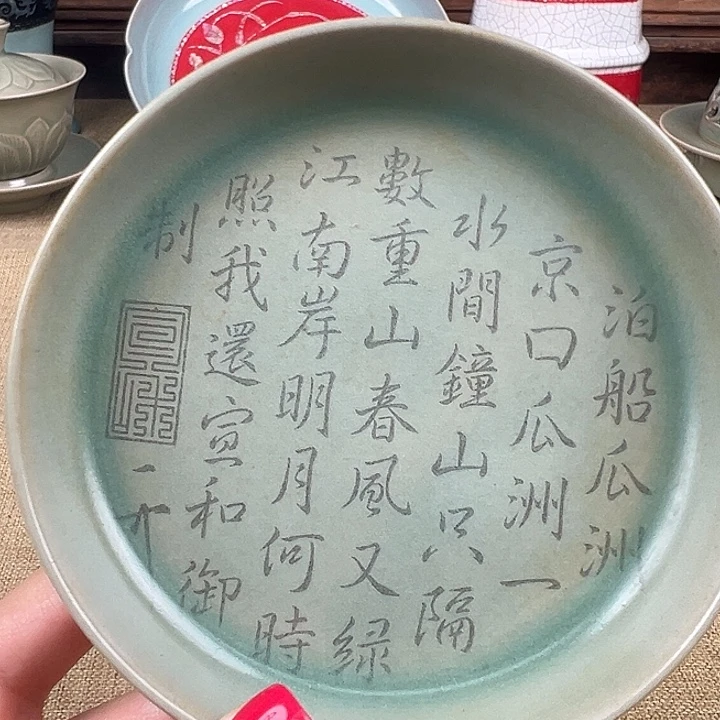 泊船瓜洲
京口瓜洲一
水間鐘山只隔
數重山春風又绿
江南岸明月何時
照我還宣和御
制